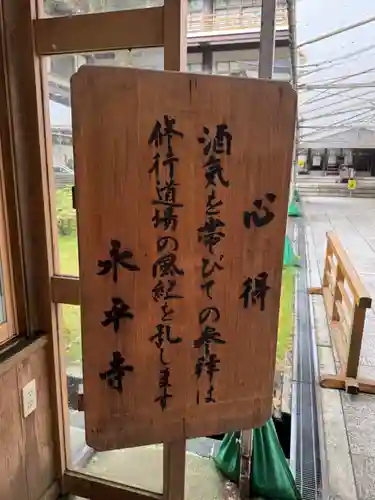 心得
酒気を帯びての参拝は
修行道場の風紀を乱します
永平寺